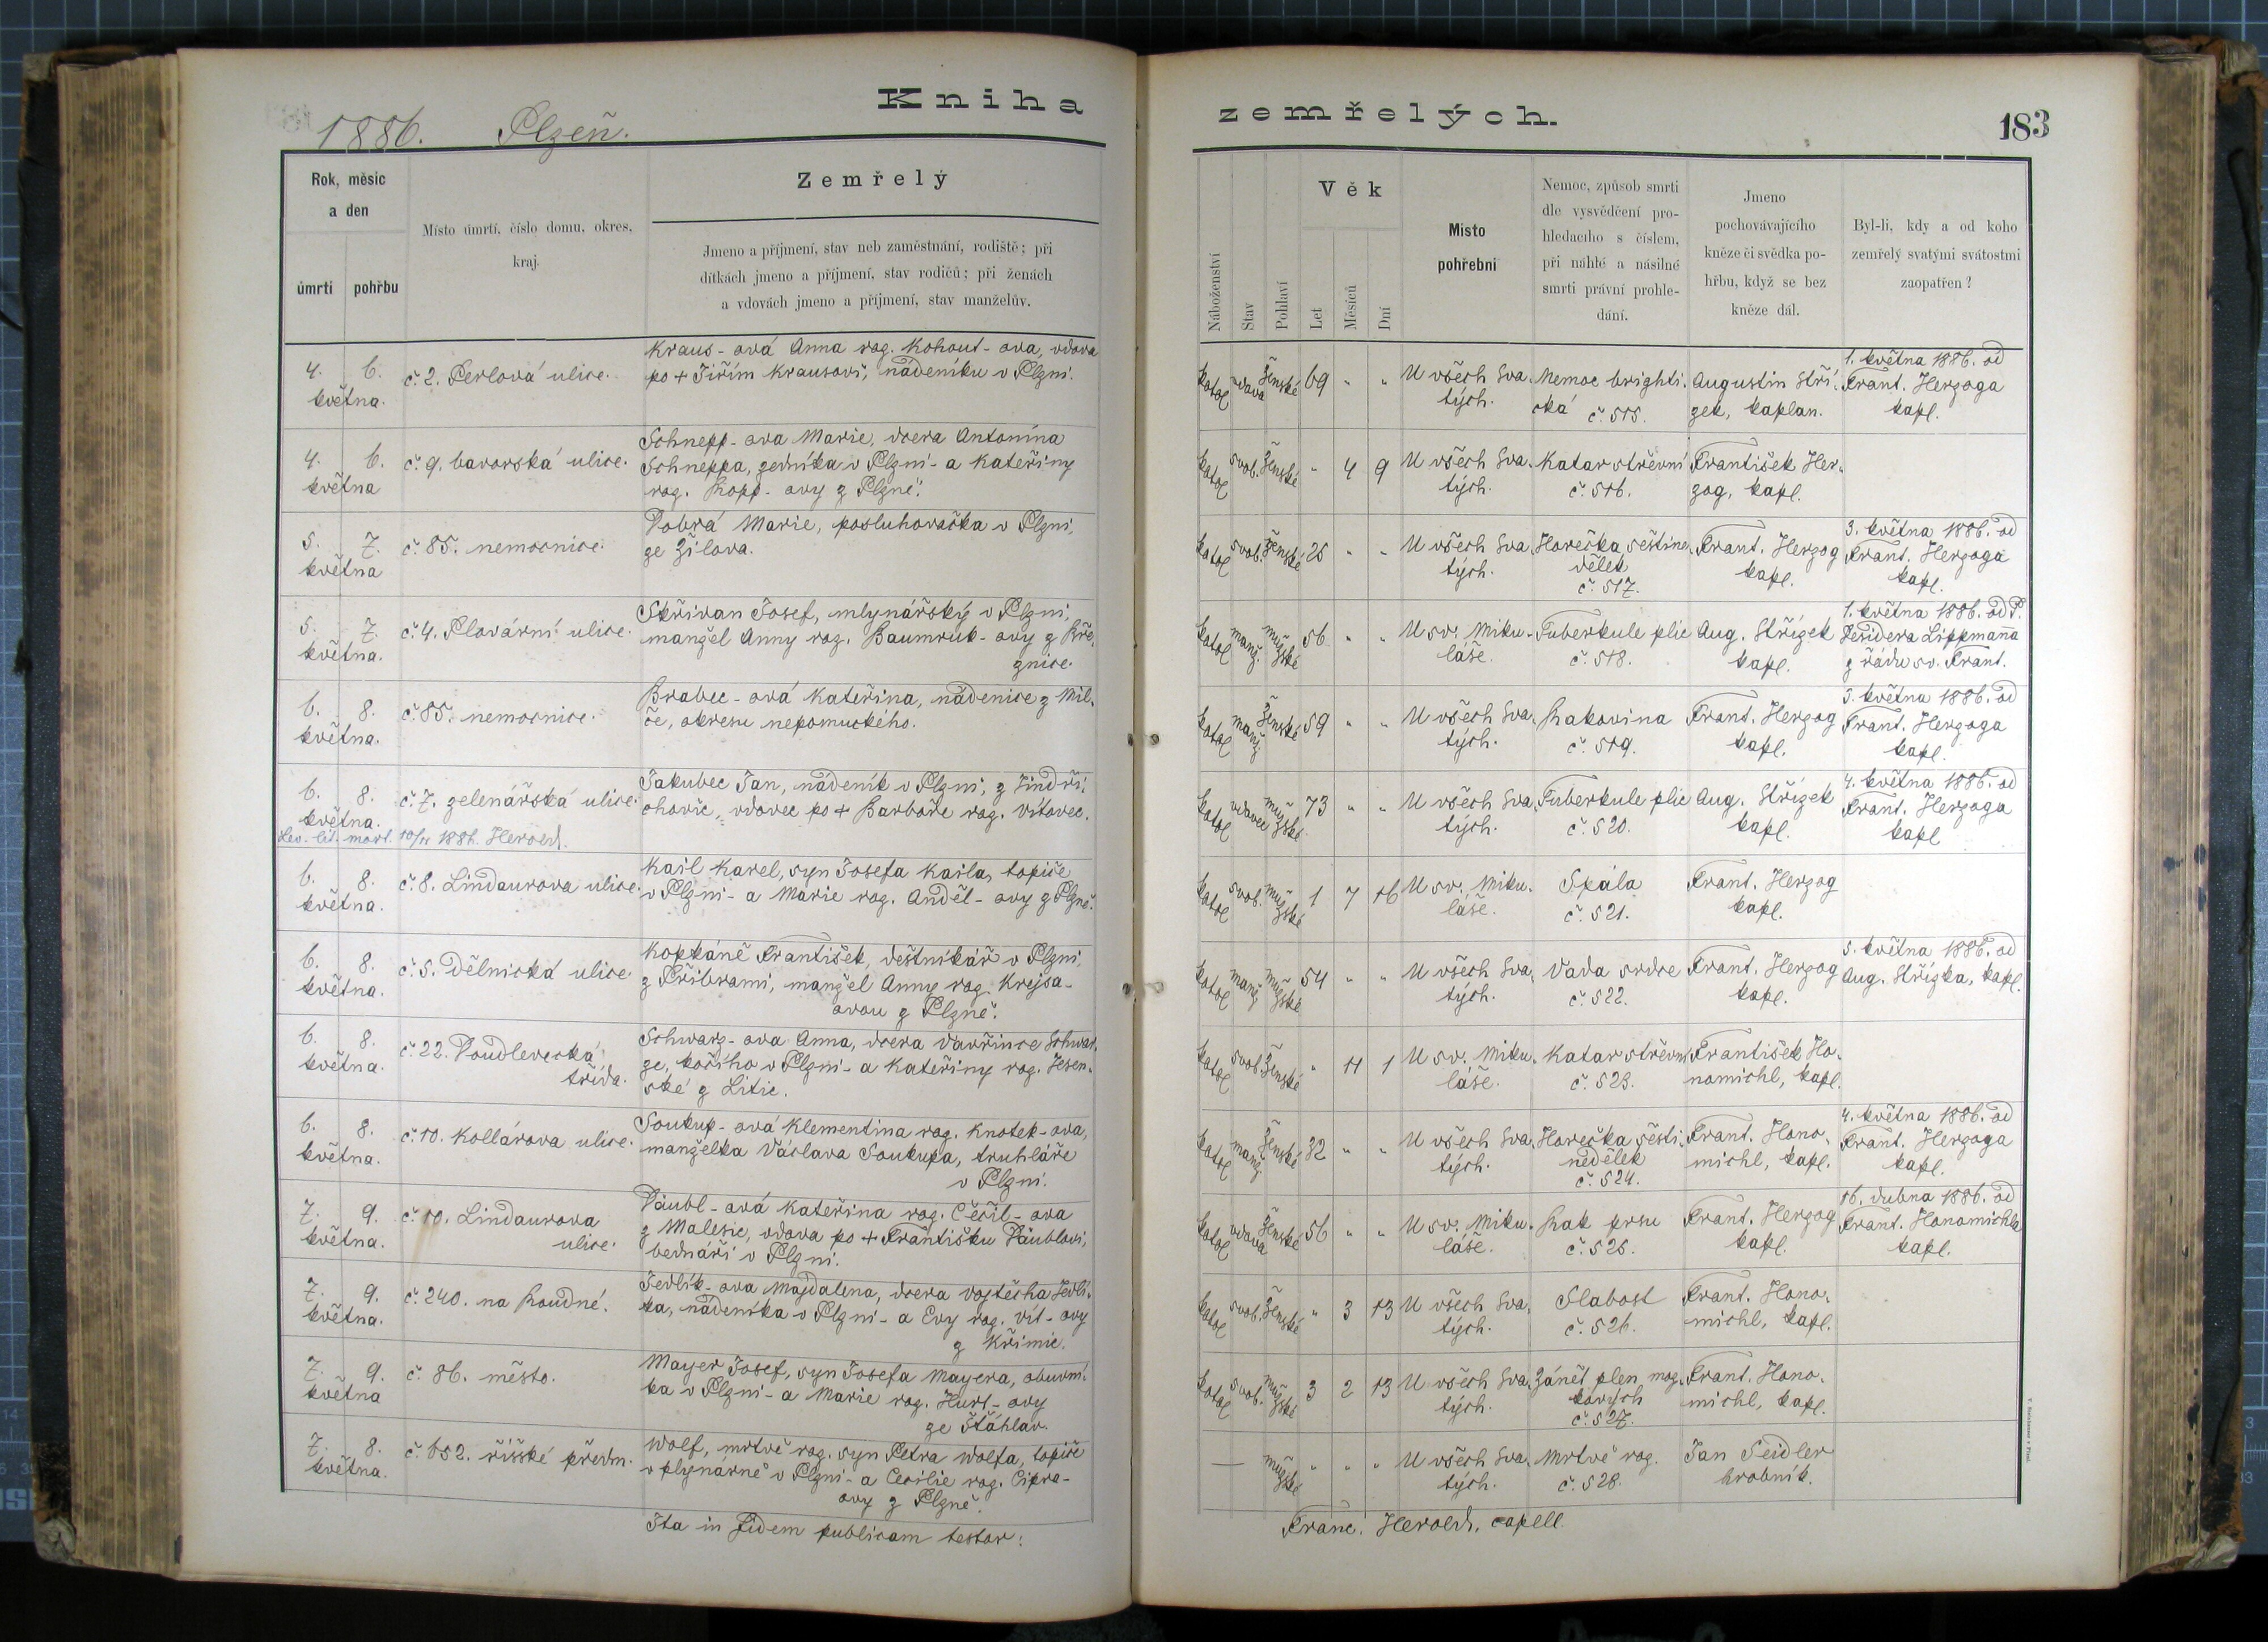 Kniha
zemřelých.
183
1886. Plzeň.
Rok, měsíc
a den
úmrtí
pohřbu
Místo úmrtí, číslo domu, okres,
kraj.
Zemřelý
Jmeno a příjmení, stav neb zaměstnání, rodiště; při
dítkách jmeno a příjmení, stav rodičů; při ženách
a vdovách jmeno a příjmení, stav manželův.
Náboženství
Stav
Pohlaví
Věk
Let
Měsíců
Dní
Místo
pohřební
Nemoc, způsob smrti
dle vysvědčení pro-
hledacího s číslem,
při náhlé a násilné
smrti právní prohle-
dání.
Jmeno
pochovávajícího
kněze či svědka po-
hřbu, když se bez
kněze dál.
Byl-li, kdy a od koho
zemřelý svatými svátostmi
zaopatřen?
4. 6.
května.
č. 2. Perlová ulice.
Kraus-ová Anna roz. Kohout-ova, vdova
po + Jiřím Krausovi, nádeníku v Plzni.
katol vdova ženské 69 " "
U všech Sva-
tých.
Nemoc brighti-
cká č. 515.
Augustin Stří-
zek, kaplan.
1. května 1886. od
Frant. Herzoga
kapl.
4. 6.
května
č. 9. bavorská ulice.
Schnepp-ova Marie, dcera Antonína
Schneppa, zedníka v Plzni - a Kateřiny
roz. Kopp-ovy z Plzně.
katol svob. ženské " 4 9
U všech Sva-
tých.
Katar střevní
č. 516.
František Her-
zog, kapl.
5. 7.
května
č. 85. nemocnice.
Dobrá Marie, posluhovačka v Plzni,
ze Žilova.
katol svob. ženské 25 " "
U všech Sva-
tých.
Horečka šestine-
dělek
č. 517.
Frant. Herzog
kapl.
3. května 1886. od
Frant. Herzoga
kapl.
5. 7.
května.
č. 4. Plovární ulice.
Skřivan Josef, mlynářský v Plzni,
manžel Anny roz. Baumruk-ovy z Kře-
znice.
katol manž. mužské 56 " "
U sv. Miku-
láše.
Tuberkule plic
č. 518.
Aug. Střízek
kapl.
1. května 1886. od P.
Desidera Lippmanna
z řádu sv. Frant.
6. 8.
května.
č. 85. nemocnice.
Brabec-ová Kateřina, nádenice z Mil-
če, okresu nepomuckého.
katol manž ženské 59 " "
U všech Sva-
tých.
Rakovina
č. 519.
Frant. Herzog
kapl.
3. května 1886. od
Frant. Herzoga
kapl.
6. 8.
května.
č. 7. zelenářská ulice.
Jakubec Jan, nádeník v Plzni, z Jindři-
chovic, vdovec po + Barboře roz. Vítovec.
katol vdovec mužské 73 " "
U všech Sva-
tých.
Tuberkule plic
č. 520.
Aug. Střízek
kapl.
4. května 1886. od
Frant. Herzoga
kapl
Lev. lit. mort. 10/11 1886. Herold.
6. 8.
května.
č. 8. Lindaurova ulice.
Kail Karel, syn Josefa Kaila, topiče
v Plzni - a Marie roz. Anděl-ovy z Plzně.
katol svob. mužské 1 7 16
U sv. Miku-
láše.
Spála
č. 521.
Frant. Herzog
kapl.
6. 8.
května.
č. 5. Dělnická ulice
Kopkáně František, deštníkář v Plzni,
z Příbrami, manžel Anny roz. Krejsa-
ovou z Plzně.
katol manž mužské 54 " "
U všech Sva-
tých.
Vada srdce
č. 522.
Frant. Herzog
kapl.
5. května 1886. od
Aug. Střízka, kapl.
6. 8.
května.
č. 22. Doudlevecká
třída.
Schwarz-ova Anna, dcera Vavřince Schwar-
ze, kočího v Plzni - a Kateřiny roz. Jesen-
ské z Litic.
katol svob. ženské " 11 1
U sv. Miku-
láše.
Katar střevní
č. 523.
František Ho-
nomichl, kapl.
6. 8.
května.
č. 10. Kollárova ulice.
Soukup-ová Klementina roz. Knotek-ova,
manželka Václava Soukupa, truhláře
v Plzni.
katol manž ženské 32 " "
U všech Sva-
tých.
Horečka šesti-
nedělek
č. 524.
Frant. Hono-
michl, kapl.
4. května 1886. od
Frant. Herzoga
kapl.
7. 9.
května.
č. 10. Lindaurova
ulice.
Däubl-ová Kateřina roz. Čečil-ova
z Malesic, vdova po + Františku Däublovi,
bednáři v Plzni.
katol vdova ženské 56 " "
U sv. Miku-
láše.
Rak prsu
č. 525.
Frant. Herzog
kapl.
16. dubna 1886. od
Frant. Honomichla
kapl.
7. 9.
května.
č. 240. na Roudné.
Jedlík-ova Majdalena, dcera Vojtěcha Jedlí-
ka, nádeníka v Plzni - a Evy roz. Vít-ovy
z Křimic.
katol svob. ženské " 3 13
U všech Sva-
tých.
Slabost
č. 526.
Frant. Hono-
michl, kapl.
7. 9.
května
č. 86. město.
Mayer Josef, syn Josefa Mayera, obuvní-
ka v Plzni - a Marie roz. Hurt-ovy
ze Šťáhlav.
katol svob. mužské 3 2 13
U všech Sva-
tých.
Zánět plen moz-
kových
č. 527.
Frant. Hono-
michl, kapl.
7. 8.
května.
č. 652. říšské předm.
Wolf, mrtvě roz. syn Petra Wolfa, topiče
v plynárně v Plzni - a Cecilie roz. Cipra-
ovy z Plzně.
— mužské " " "
U všech Sva-
tých.
Mrtvě roz.
č. 528.
Jan Seidler
hrobník.
Ita in fidem publicam testor:
Franc. Herold, capell.